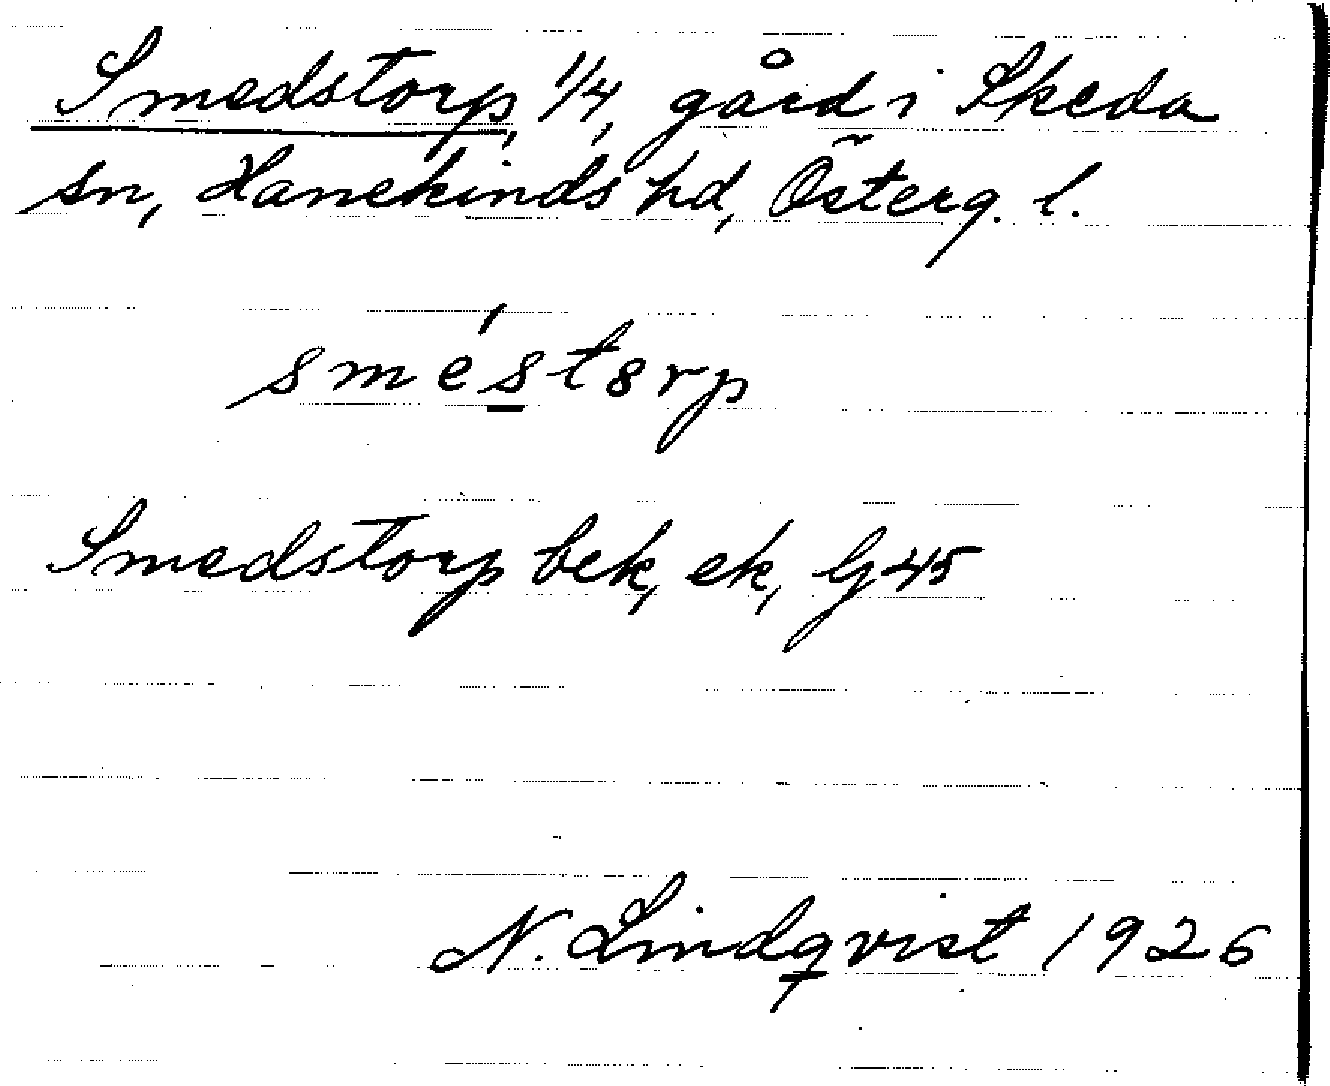 Smedstorp, 1/4, gård i Skeda
sn, Hanekinds hd, Österg. l.
sméstorp
Smedstorp bek, ek, Gj 45
N. Lindqvist 1926